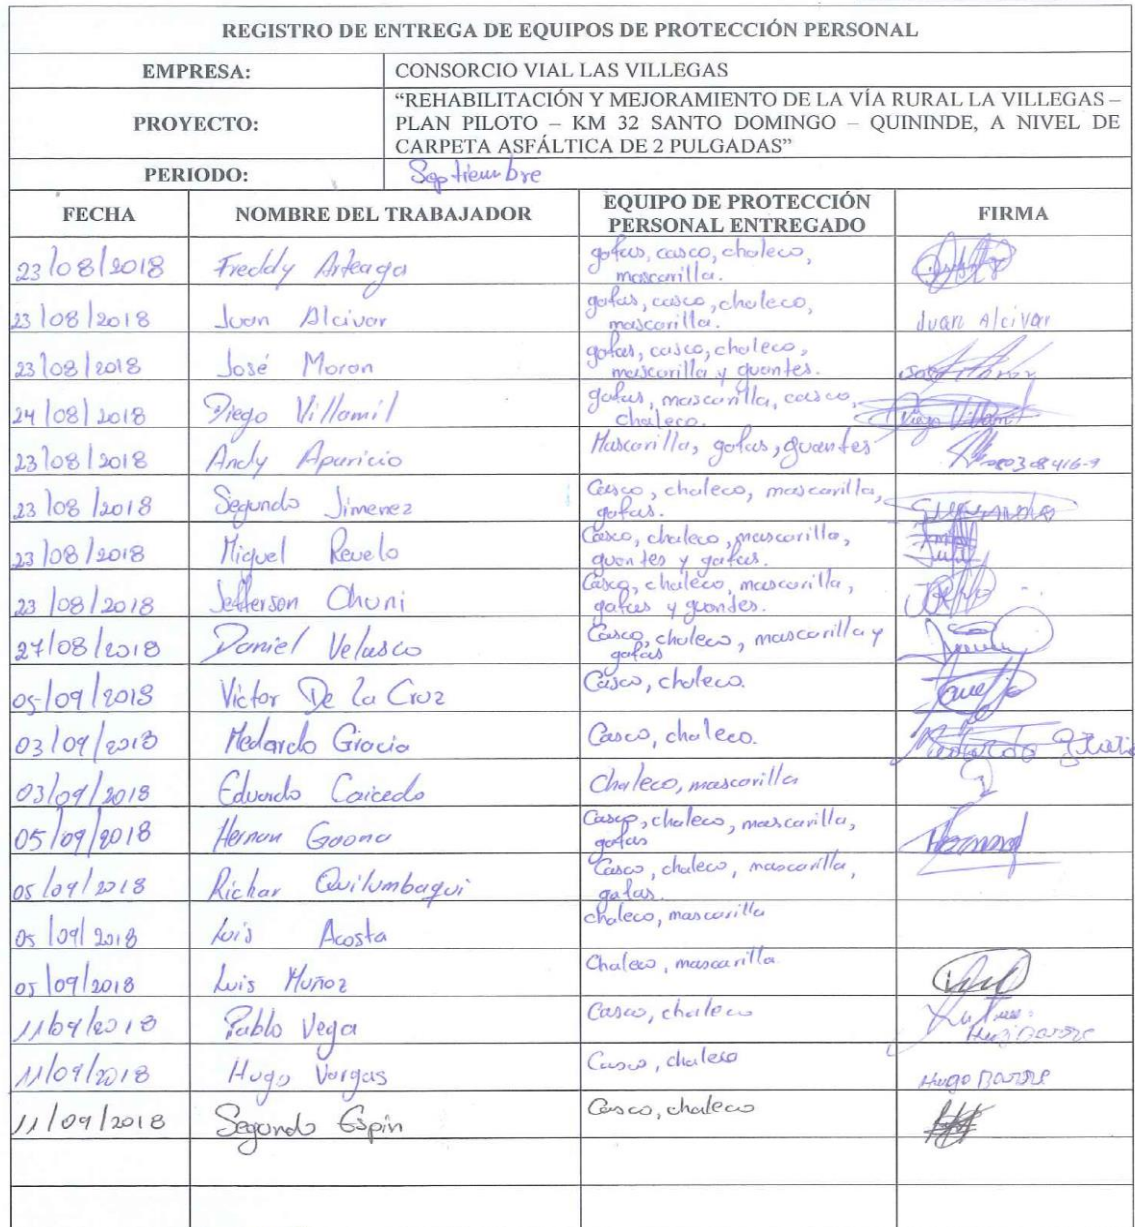 REGISTRO DE ENTREGA DE EQUIPOS DE PROTECCIÓN PERSONAL
EMPRESA: CONSORCIO VIAL LAS VILLEGAS
PROYECTO: “REHABILITACIÓN Y MEJORAMIENTO DE LA VÍA RURAL LA VILLEGAS –
PLAN PILOTO – KM 32 SANTO DOMINGO – QUININDE, A NIVEL DE
CARPETA ASFÁLTICA DE 2 PULGADAS”
PERIODO: Septiembre
FECHA NOMBRE DEL TRABAJADOR EQUIPO DE PROTECCIÓN
PERSONAL ENTREGADO FIRMA
23/08/2018 Freddy Arteaga gafas, casco, chaleco,
mascarilla.
23/08/2018 Juan Alcivar gafas, casco, chaleco,
mascarilla. Juan Alcivar
23/08/2018 José Moran gafas, casco, chaleco,
mascarilla y guantes.
24/08/2018 Diego Villamil gafas, mascarilla, casco,
chaleco. Diego Villamil
23/08/2018 Andy Aparicio Mascarilla, gafas, guantes
23/08/2018 Segundo Jimenez Casco, chaleco, mascarilla,
gafas.
23/08/2018 Miguel Revelo Casco, chaleco, mascarilla,
guantes y gafas.
23/08/2018 Jefferson Chuni Casco, chaleco, mascarilla,
gafas y guantes.
27/08/2018 Daniel Velasco Casco, chaleco, mascarilla y
gafas
05/09/2018 Víctor De La Cruz Casco, chaleco.
03/09/2018 Medardo Gracia Casco, chaleco.
03/09/2018 Eduardo Caicedo Chaleco, mascarilla
05/09/2018 Hernan Gaona Casco, chaleco, mascarilla,
gafas
05/09/2018 Richar Quilumbaqui Casco, chaleco, mascarilla,
gafas.
05/09/2018 Luis Acosta chaleco, mascarilla
05/09/2018 Luis Muñoz Chaleco, mascarilla
11/09/2018 Pablo Vega Casco, chaleco
11/09/2018 Hugo Vargas Casco, chaleco
Hugo
11/09/2018 Segundo Espin Casco, chaleco